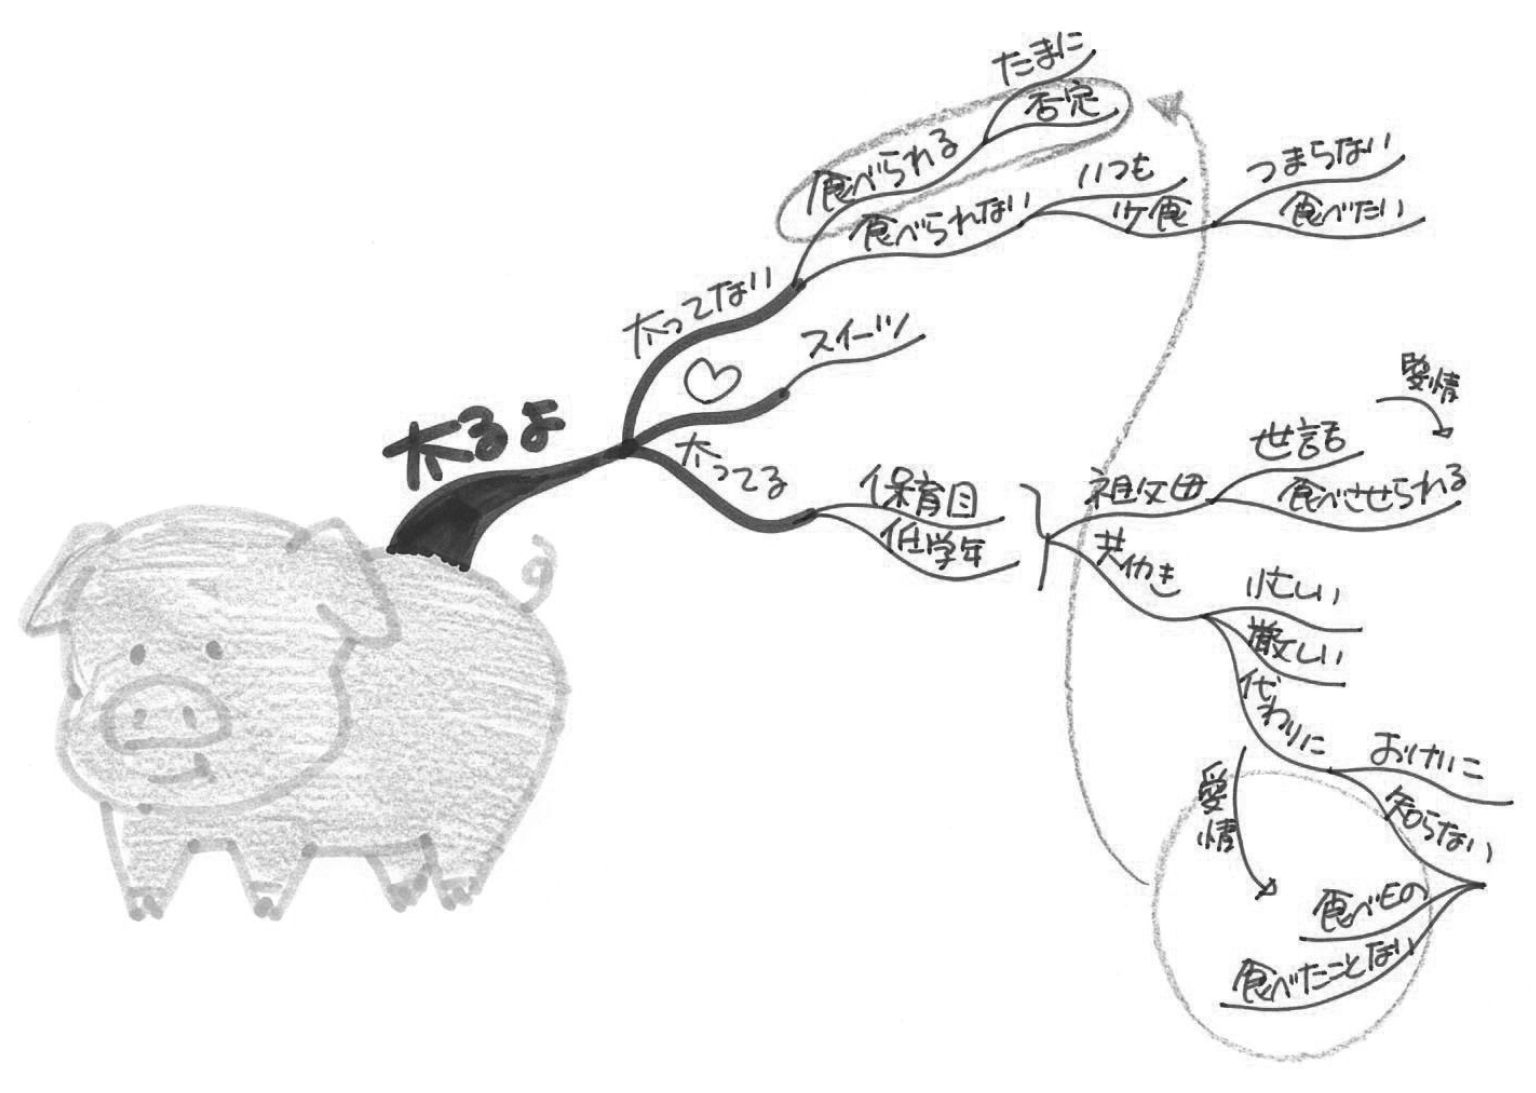 太るよ
太ってない
食べられる
たまに
否定
食べられない
いつも
ケ食
つまらない
食べたい
スイーツ
太ってる
保育目
低学年
祖父母
世話
食べさせられる
愛情
共働き
忙しい
厳しい
代わりに
おけいこ
知らない
食べモの
食べたことない
愛情